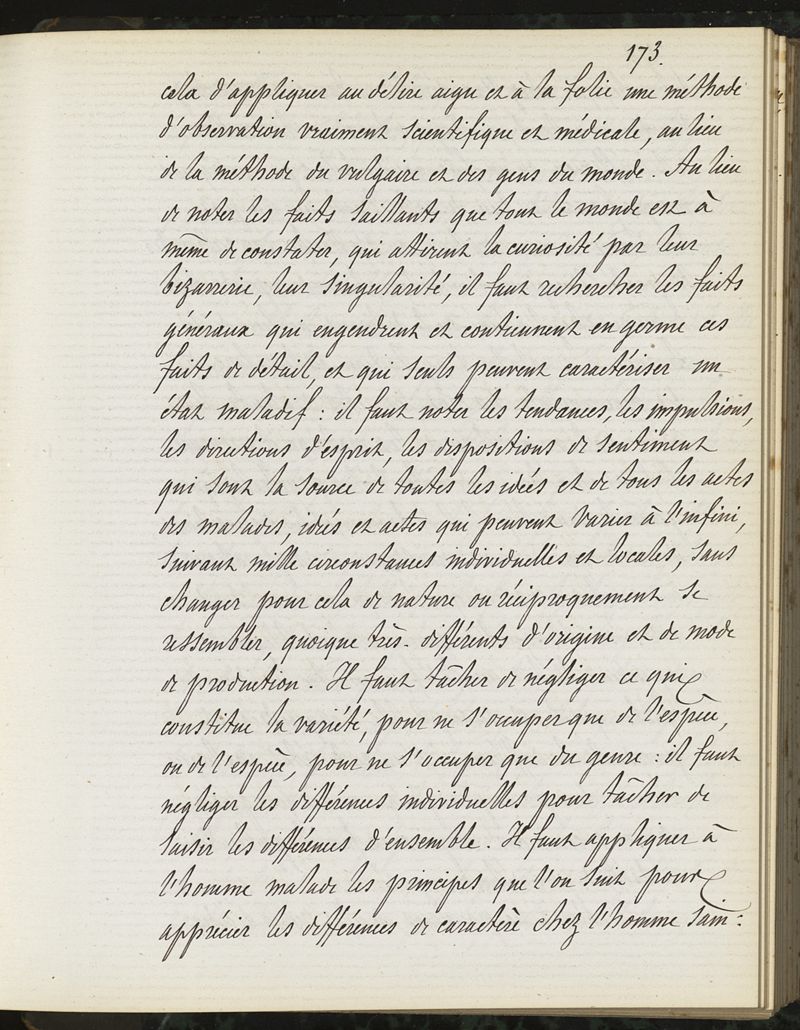 173.
cela d'appliquer au délire aigu et à la folie une méthode
d'observation vraiment scientifique et médicale, au lieu
de la méthode du vulgaire et des gens du monde. Au lieu
de noter les faits saillants que tout le monde est à
même de constater, qui attirent la curiosité par leur
bizarrerie, leur singularité, il faut rechercher les faits
généraux qui engendrent et contiennent en germe ces
faits de détail, et qui seuls peuvent caractériser un
état maladif : il faut noter les tendances, les impulsions,
les directions d'esprit, les dispositions de sentiment
qui sont la source de toutes les idées et de tous les actes
des malades, idées et actes qui peuvent varier à l'infini,
suivant mille circonstances individuelles et locales, sans
changer pour cela de nature ou réciproquement se
ressembler, quoique très-différents d'origine et de mode
de production. Il faut tâcher de négliger ce qui
constitue la variété, pour ne s'occuper que de l'espèce,
ou de l'espèce, pour ne s'occuper que du genre : il faut
négliger les différences individuelles pour tâcher de
saisir les différences d'ensemble. Il faut appliquer à
l'homme malade les principes que l'on suit pour
apprécier les différences de caractère chez l'homme sain :